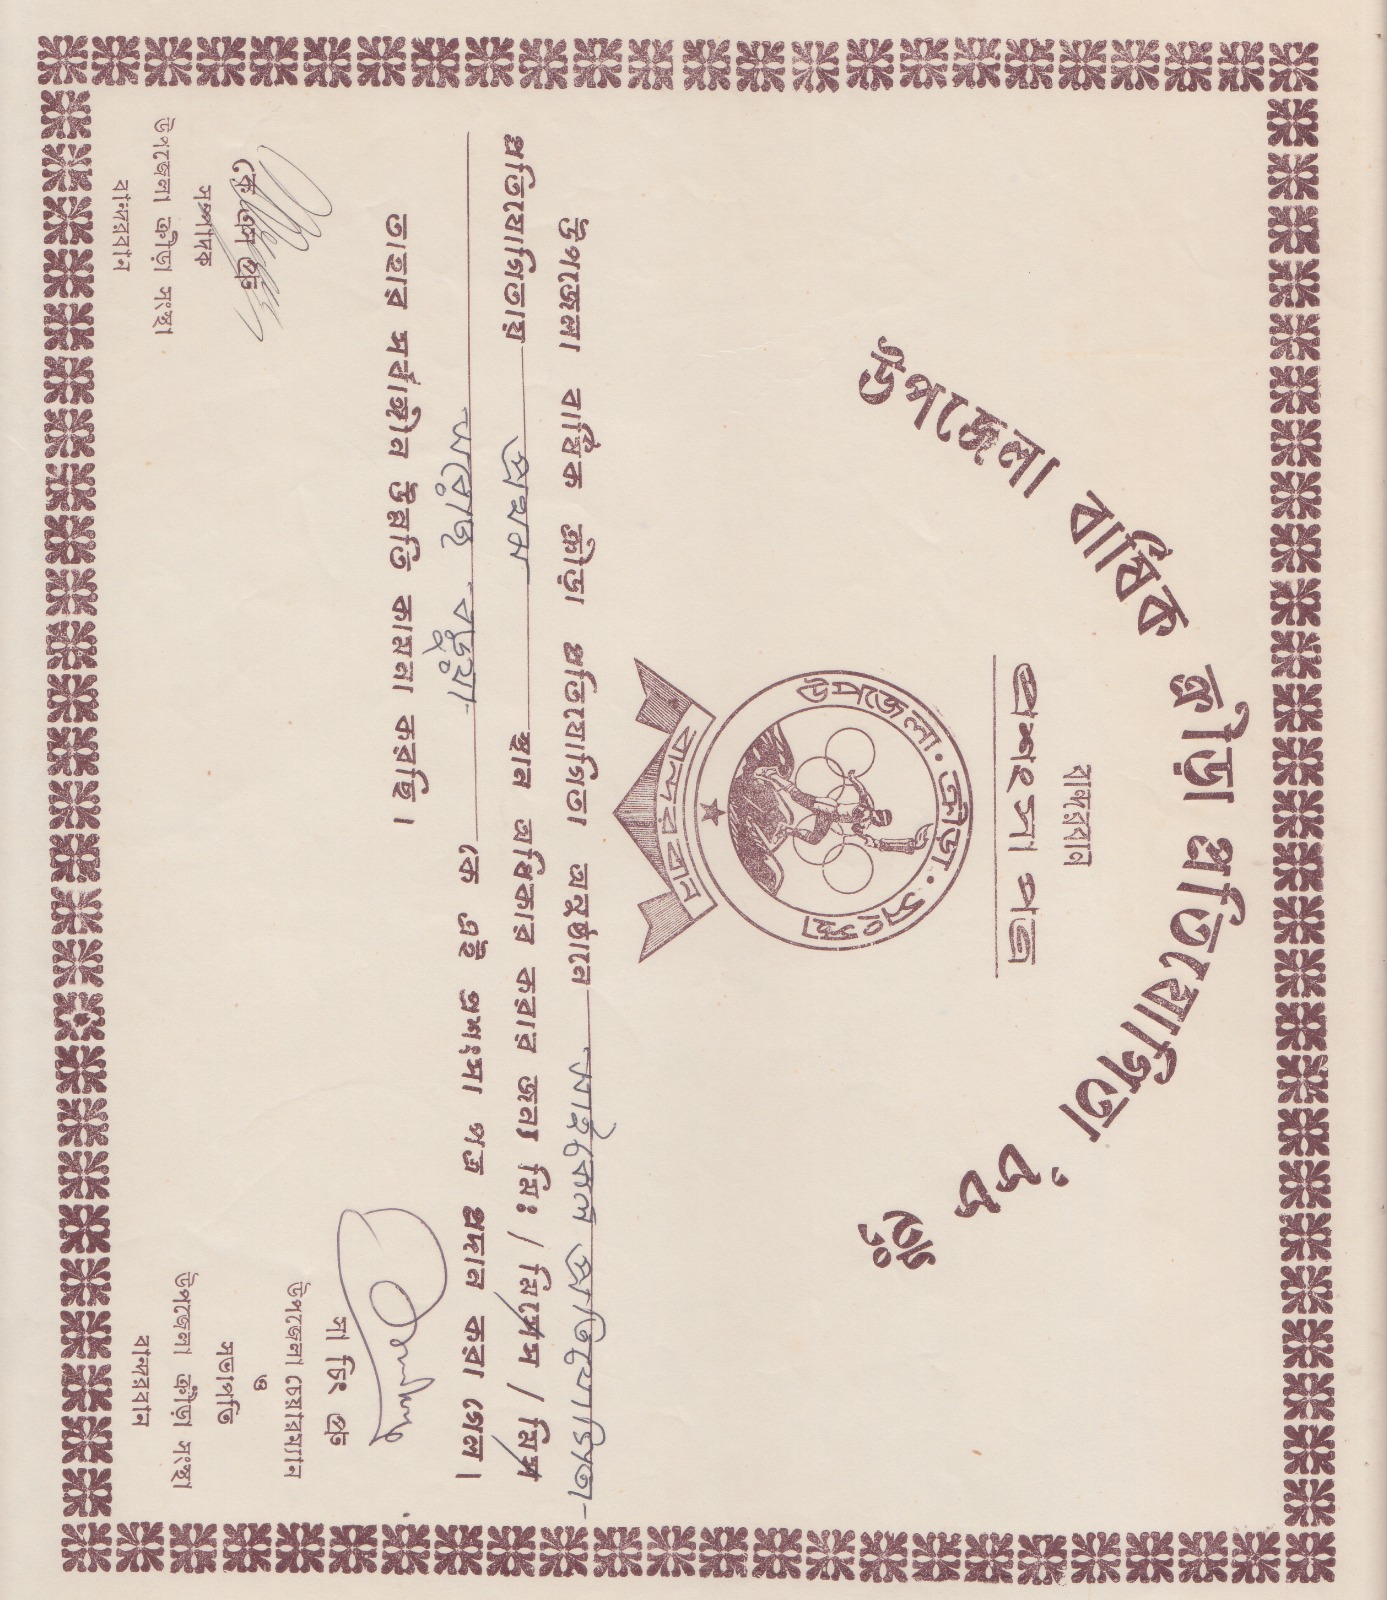 উপজেলা বার্ষিক ক্রীড়া প্রতিযোগিতা '৮৮ ইং
বান্দরবান
প্রশংসা পত্র
উপজেলা · ক্রীড়া · সংস্থা
বান্দরবান
উপজেলা বার্ষিক ক্রীড়া প্রতিযোগিতা অনুষ্ঠানে সাইকেল প্রতিযোগিতা
প্রতিযোগিতায় প্রথম স্থান অধিকার করার জন্য মিঃ / মিসেস / মিস
সরোজ বড়ুয়া কে এই প্রশংসা পত্র প্রদান করা গেল।
তাহার সর্বাঙ্গীন উন্নতি কামনা করছি।
সা চিং প্রু
উপজেলা চেয়ারম্যান
ও
সভাপতি
উপজেলা ক্রীড়া সংস্থা
বান্দরবান
কে এস প্রু
সম্পাদক
উপজেলা ক্রীড়া সংস্থা
বান্দরবান